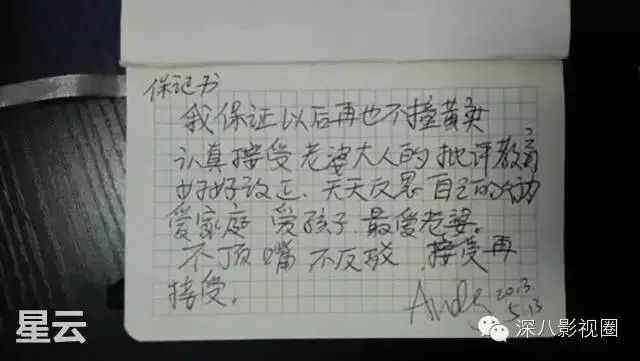 保记书
我保证以后再也不撞黄
认真接受老婆大人的批评教育
好好改正、天天反思自己的
爱家庭 爱孩子.最爱老婆。
不顶嘴 不反驳.接受再
接受。
Andy 2013.
5.13
星云
深八影视圈